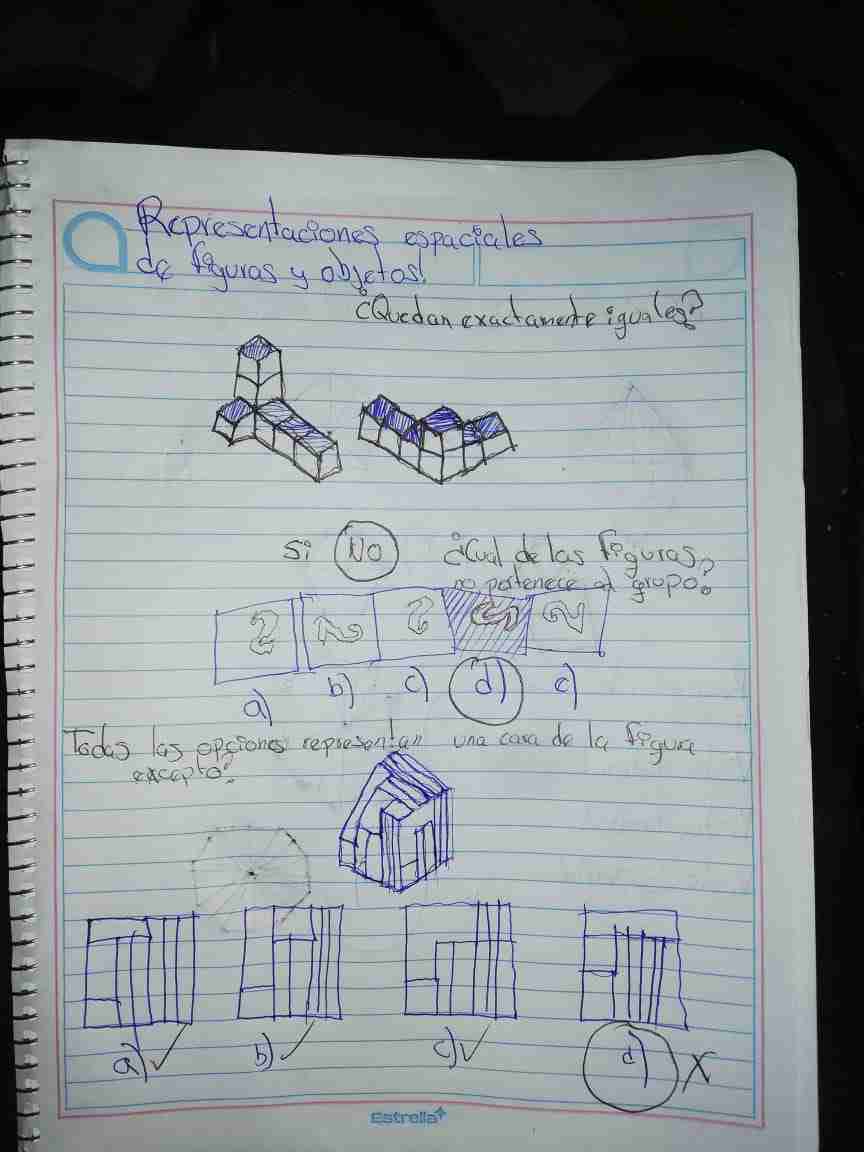 Representaciones espaciales
de figuras y objetos!
¿Quedan exactamente iguales?
Si NO
¿Cual de las figuras
no pertenece al grupo?
a) b) c) d) e)
Todas las opciones representan una cara de la figura
excepto:
a) ✓ b) ✓ c) ✓ d) X
Estrella